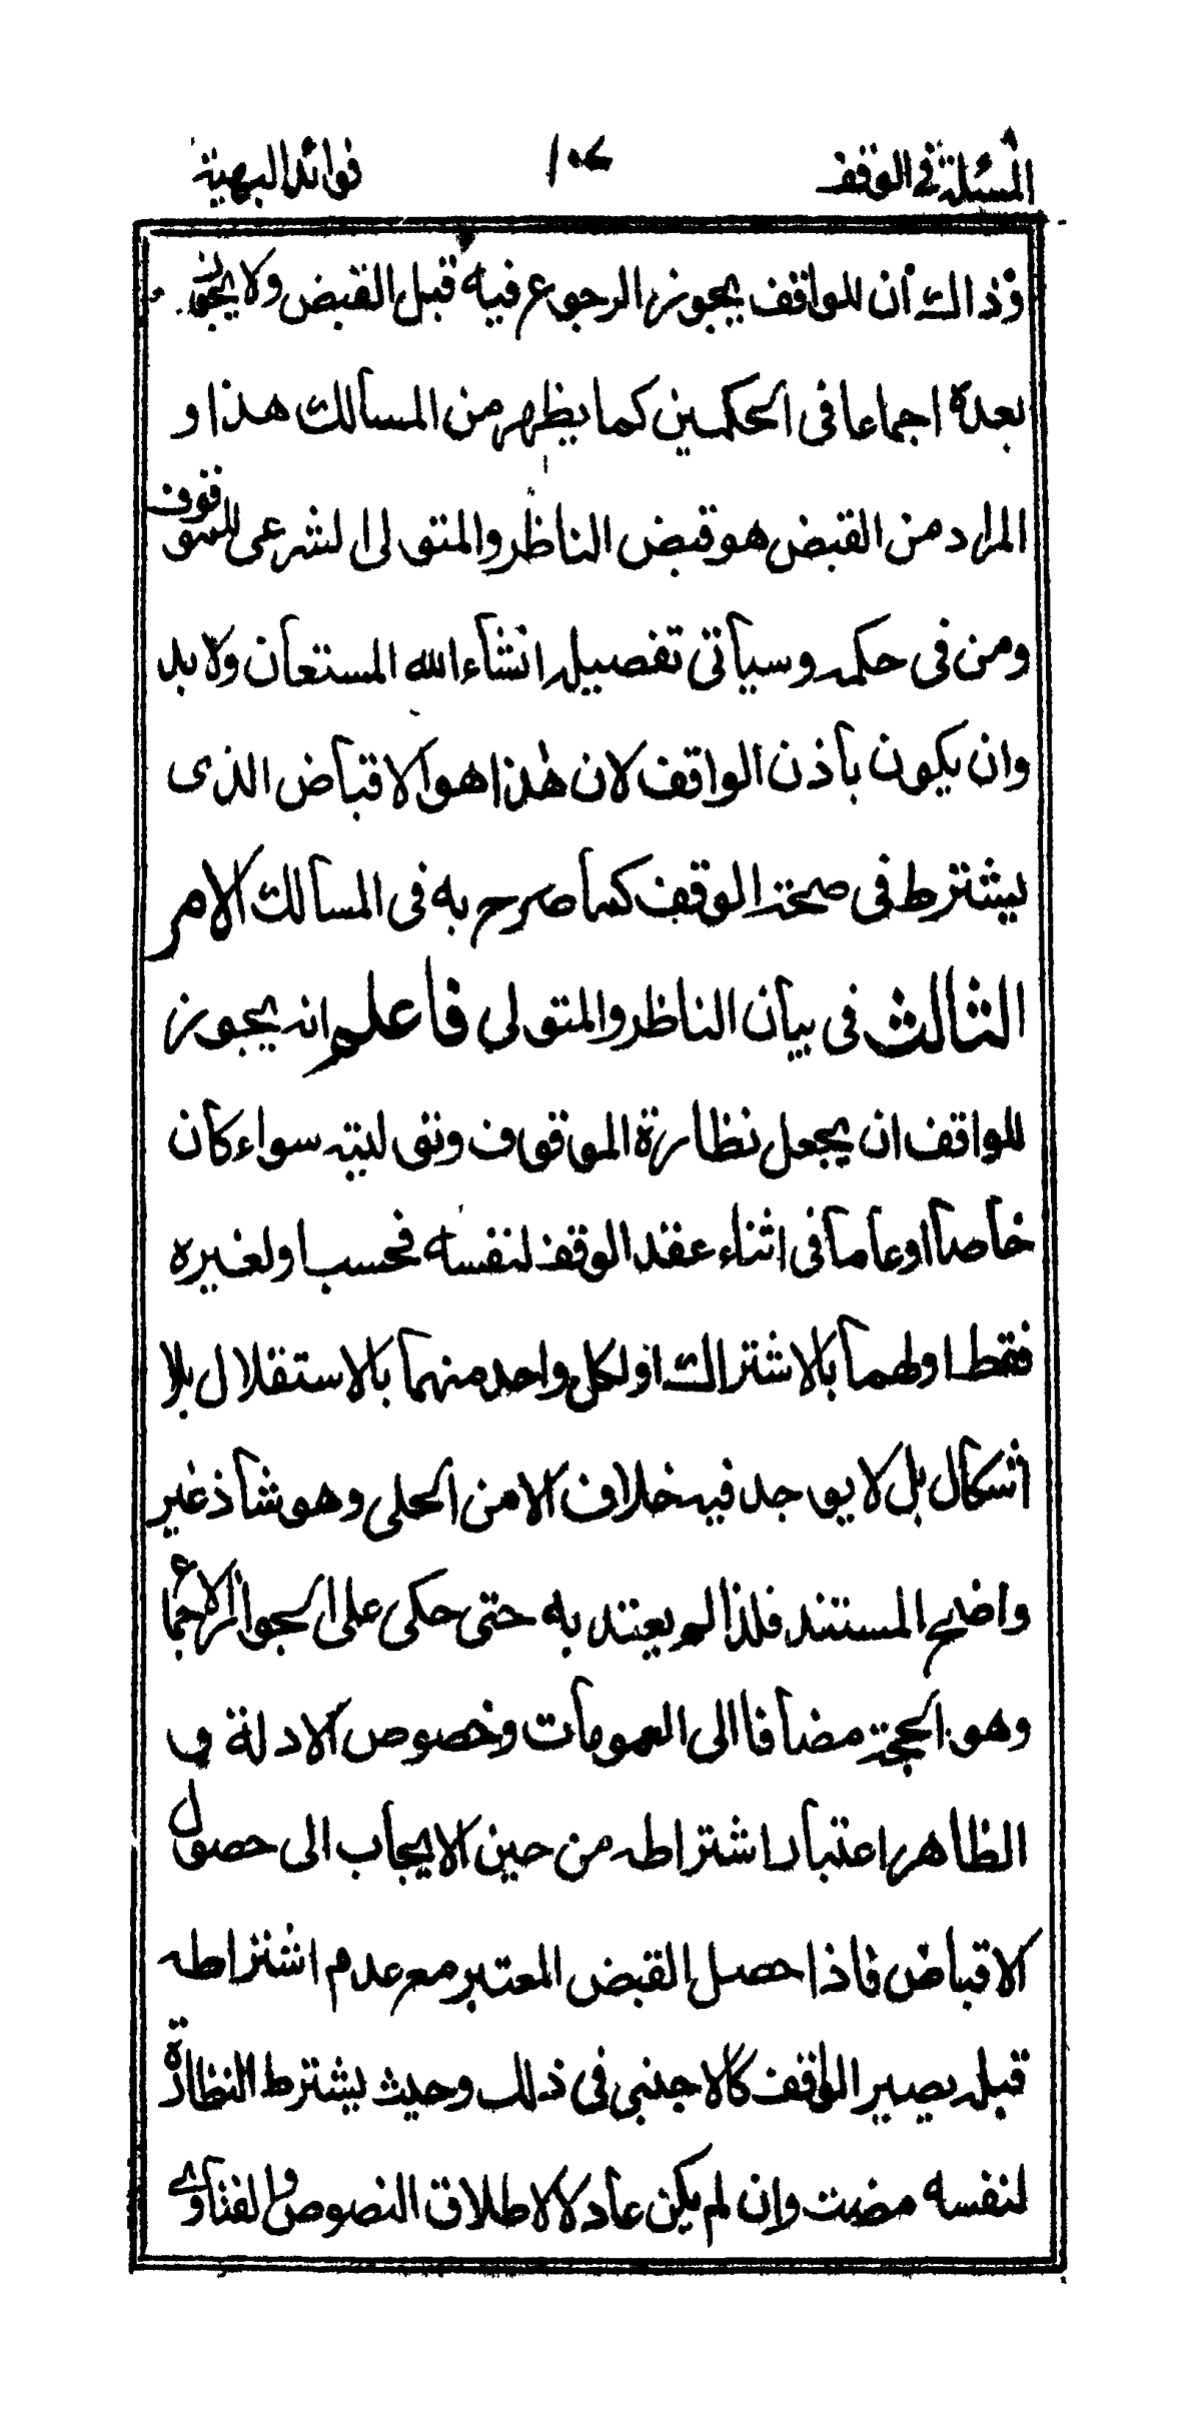 المسئلة فى الوقف ١٠٤ فوائد البهية
وذالك أن للواقف يجوز الرجوع فيه قبل القبض ولا يجوز
بعدة اجماعا فى الحكمين كما يظهر من المسالك هذا و
المراد من القبض هو قبض الناظر والمتولى الشرعى للموقوف
ومن فى حكمه وسيأتى تفصيله انشاء الله المستعان ولا بد
وان يكون بأذن الواقف لان هذا هو الاقباض الذى
يشترط فى صحة الوقف كما صرح به فى المسالك الامر
الثالث فى بيان الناظر والمتولى فاعلم انه يجوز
للواقف ان يجعل نظارة الموقوف وتوليته سواء كان
خاصا او عاما فى اثناء عقد الوقف لنفسه فحسب او لغيره
فقط او لهما بالاشتراك او لكل واحد منهما بالاستقلال بلا
اشكال بل لا يوجد فيه خلاف الا من الحلى وهو شاذ غير
واضح المستند فلذا لم يعتد به حتى حكى على الجواز الاجماع
وهو الحجة مضافا الى العمومات وخصوص الادلة و
الظاهر اعتبار اشتراطه من حين الايجاب الى حصول
الاقباض فاذا حصل القبض المعتبر مع عدم اشتراطه
قبله يصير الواقف كالاجنبى فى ذلك وحيث يشترط النظارة
لنفسه مضت وان لم يكن عادلا لاطلاق النصوص والفتاوى